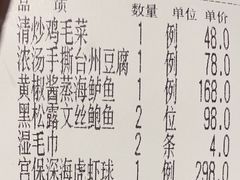 项 数量 单位 单价
清炒鸡毛菜 1 例 48.0
浓汤手撕台州豆腐 1 例 78.0
黄椒酱蒸海鲈鱼 1 例 168.0
黑松露文丝鲍鱼 2 位 98.0
湿毛巾 2 条 4.0
宫保深海虎虾球 1 例 298.0